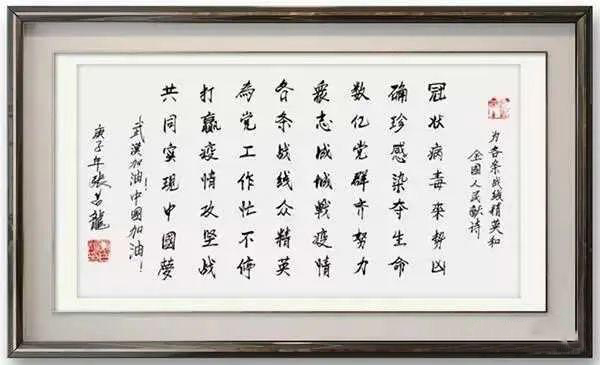 为各条战线精英和
全國人民献诗
冠状病毒來勢凶
确珍感染夺生命
数亿党群齐努力
衆志成城戰疫情
各条战线众精英
為党工作忙不停
打贏疫情攻坚战
共同实现中國夢
武漢加油!中國加油!
庚子年张龍